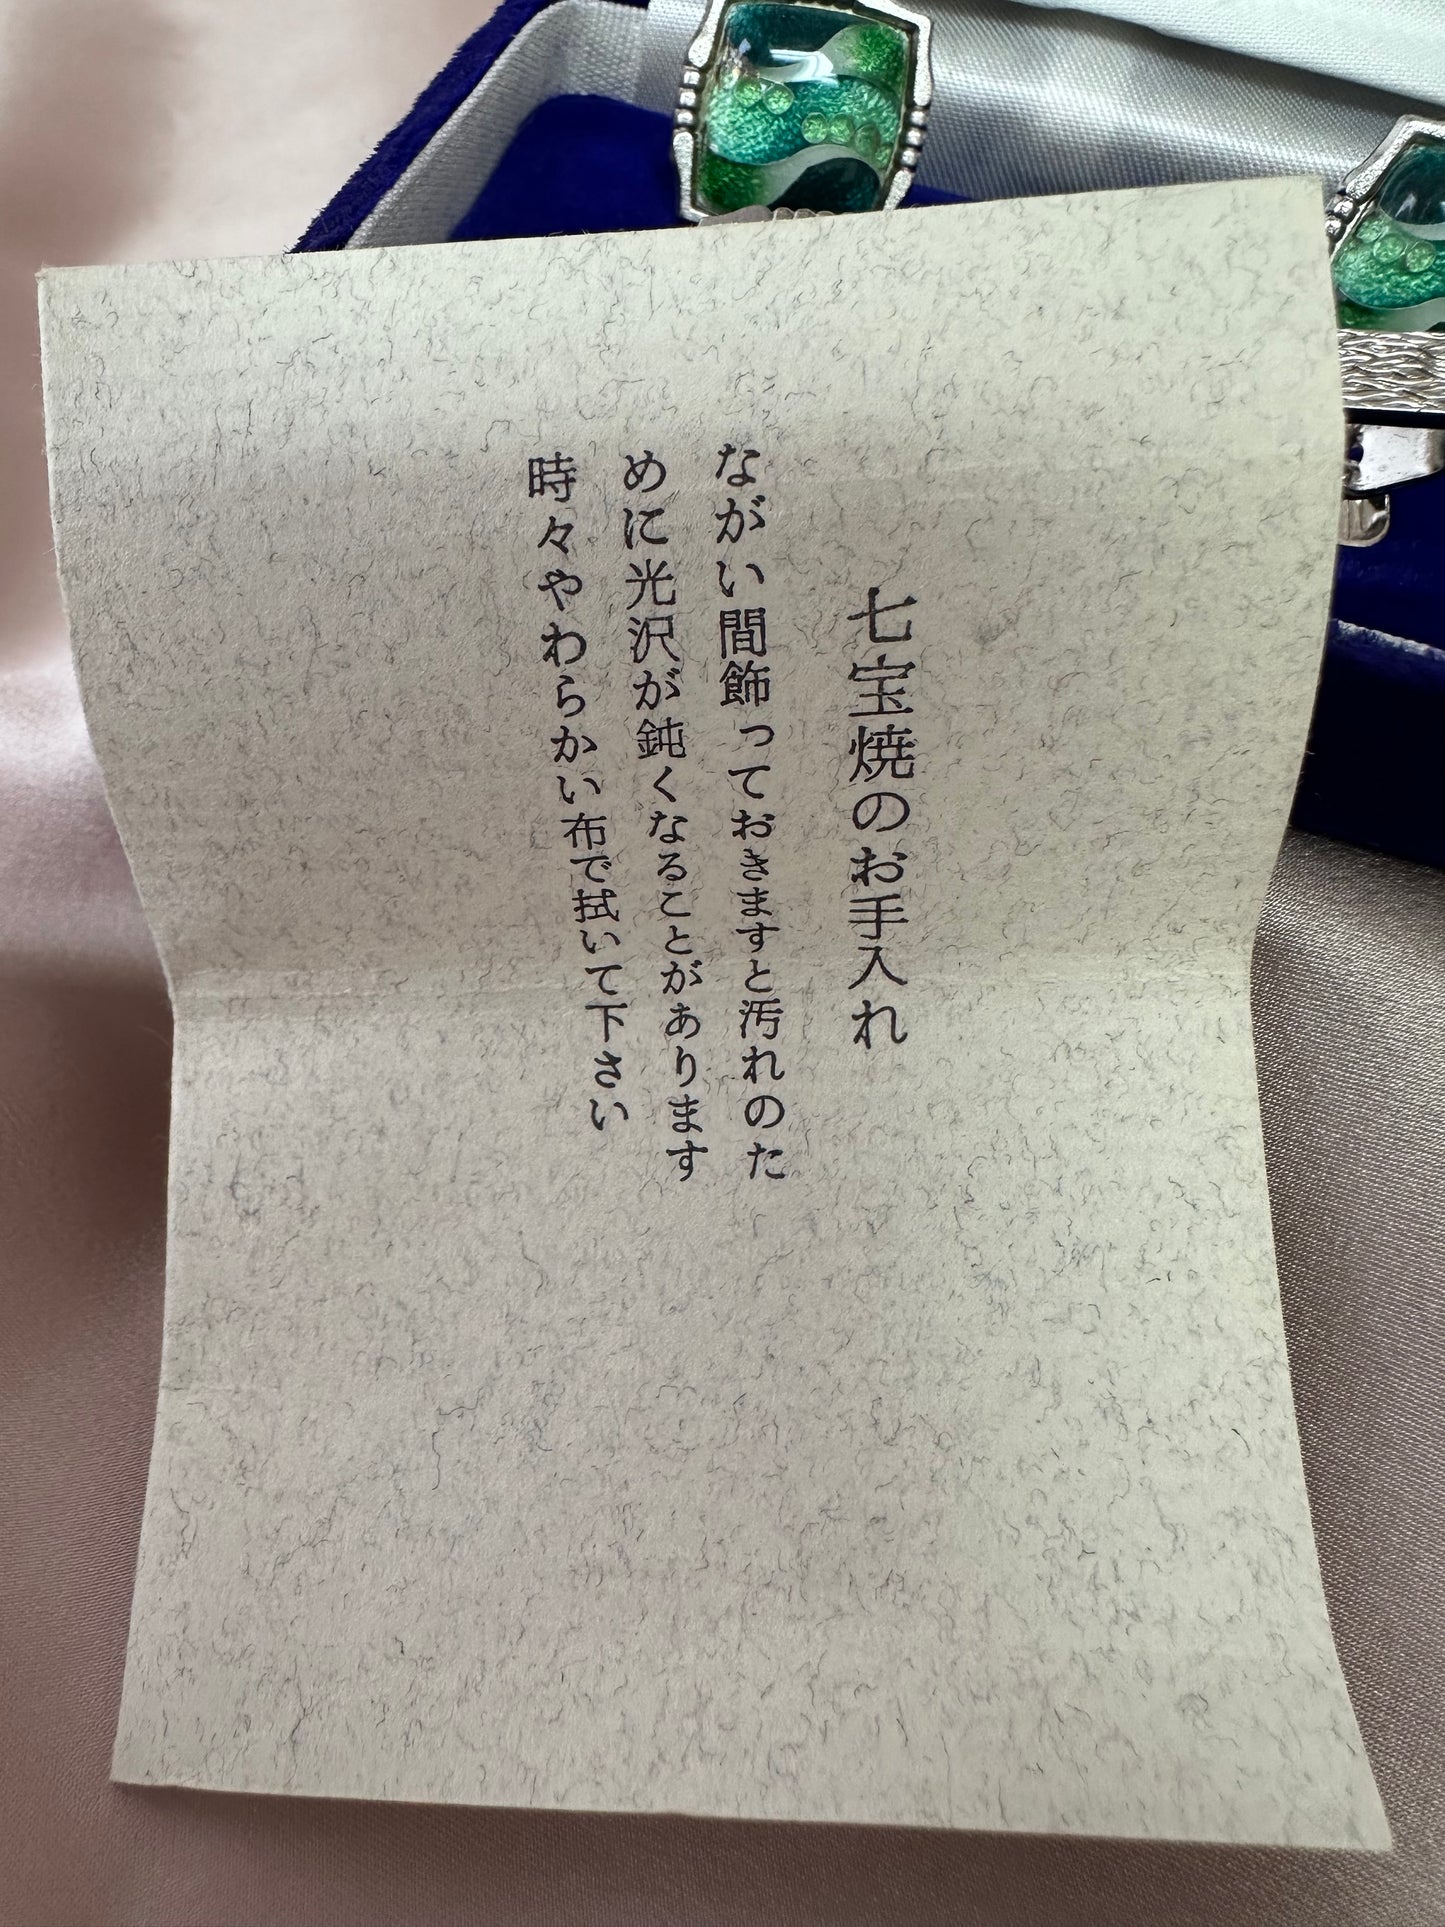 七宝焼のお手入れ
ながい間飾っておきますと汚れのた
めに光沢が鈍くなることがあります
時々やわらかい布で拭いて下さい